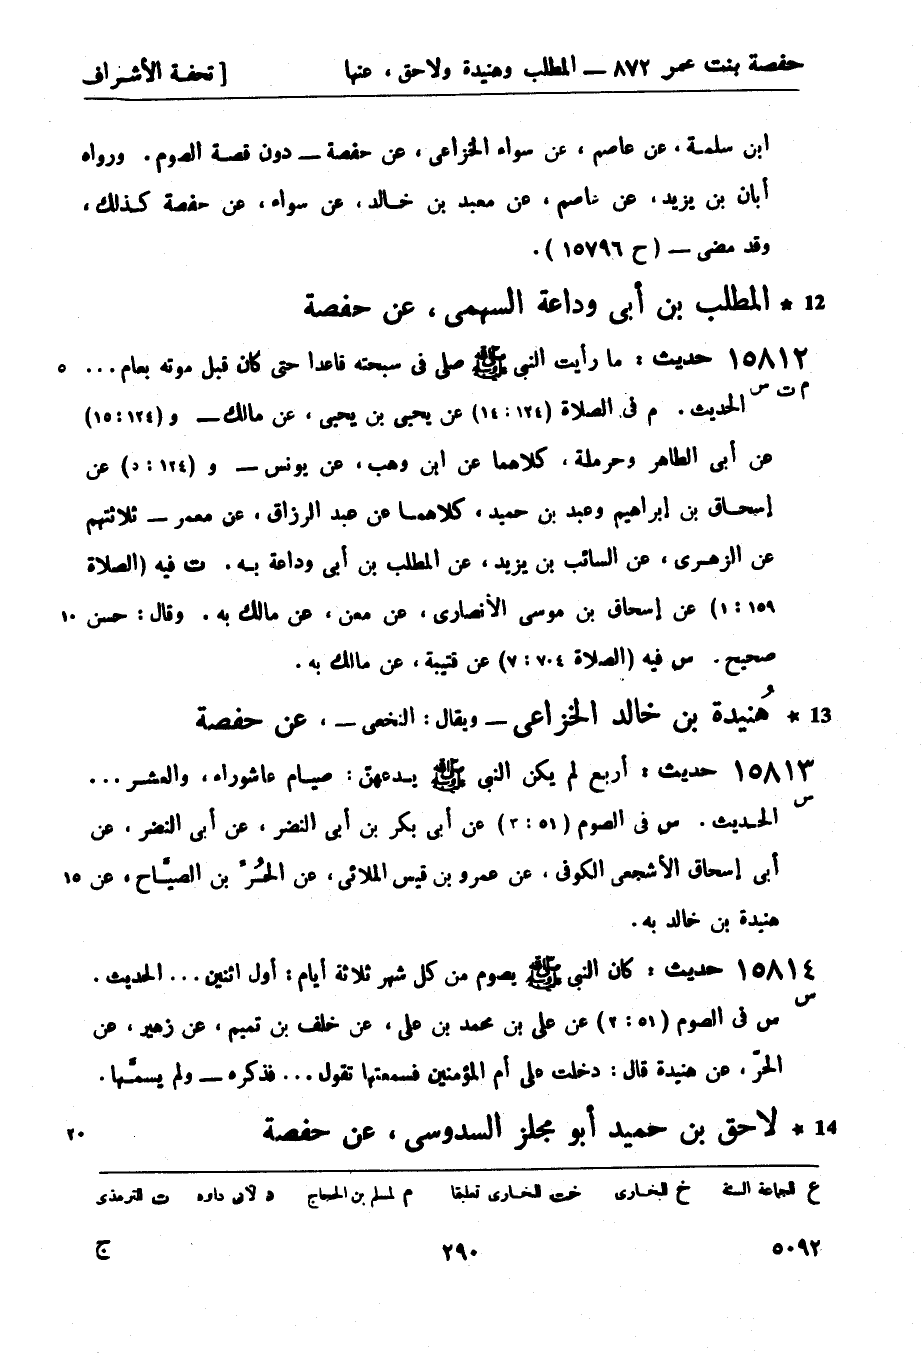 حفصة بنت عمر ٨٧٢ — المطلب وهنيدة ولاحق ، عنها [ تحفة الأشراف
ابن سلمة ، عن عاصم ، عن سواء الخزاعى ، عن حفصة — دون قصة الصوم . ورواه
أبان بن يزيد ، عن عاصم ، عن معبد بن خالد ، عن سواء ، عن حفصة كذلك ،
وقد مضى — ( ح ١٥٧٩٦ ) .
12 * المطلب بن أبى وداعة السهمى ، عن حفصة
١٥٨١٢ حديث : ما رأيت النبى ﷺ صلى فى سبحته قاعدا حتى كان قبل موته بعام ... ٥
م ت س الحديث . م فى الصلاة (١٢٤ : ١٤) عن يحيى بن يحيى ، عن مالك — و (١٢٤ : ١٥)
عن أبى الطاهر وحرملة ، كلاهما عن ابن وهب ، عن يونس — و (١٢٤ : د) عن
إسحاق بن إبراهيم وعبد بن حميد ، كلاهما عن عبد الرزاق ، عن معمر — ثلاثتهم
عن الزهرى ، عن السائب بن يزيد ، عن المطلب بن أبى وداعة به . ت فيه (الصلاة
١٥٩ : ١) عن إسحاق بن موسى الأنصارى ، عن معن ، عن مالك به . وقال : حسن ١٠
صحيح . س فيه (الصلاة ٧٠٤ : ٧) عن قتيبة ، عن مالك به .
13 * هُنيدة بن خالد الخزاعى — ويقال : النخعى — ، عن حفصة
١٥٨١٣ حديث : أربع لم يكن النبى ﷺ يدعهنّ : صيام عاشوراء ، والعشر ...
س الحديث . س فى الصوم (٥١ : ٢) عن أبى بكر بن أبى النضر ، عن أبى النضر ، عن
أبى إسحاق الأشجعى الكوفى ، عن عمرو بن قيس الملائى ، عن الحُرّ بن الصيَّاح ، عن ١٥
هنيدة بن خالد به .
١٥٨١٤ حديث : كان النبى ﷺ يصوم من كل شهر ثلاثة أيام : أول اثنين ... الحديث .
س س فى الصوم (٥١ : ٢) عن على بن محمد بن على ، عن خلف بن تميم ، عن زهير ، عن
الحرّ ، عن هنيدة قال : دخلت على أم المؤمنين فسمعتها تقول ... فذكره — ولم يسمّها .
14 * لاحق بن حميد أبو مجلز السدوسى ، عن حفصة ٢٠
ع للجماعة الستة خ للبخارى خت للبخارى تعليقا م لمسلم بن الحجاج د لابى داود ت للترمذى
٥٠٩٢ ٢٩٠ ج